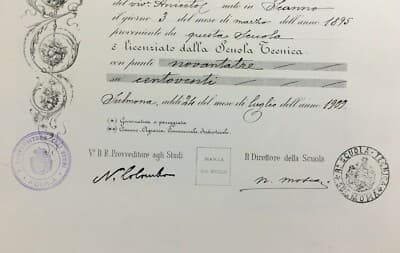 del vivo Aniceto nato in Scanno
il giorno 3 del mese di marzo dell'anno 1895
proveniente da questa Scuola
è licenziato dalla Scuola Tecnica
con punti novantatre
su centoventi
Sulmona, addì 26 del mese di luglio dell'anno 1909
(*) Governativa o pareggiata
(**) Comune-Agraria Commerciale Industriale
V° Il R. Provveditore agli Studi
MARCA DA BOLLO
Il Direttore della Scuola
N. Colombo
SCUOLA TECNICA